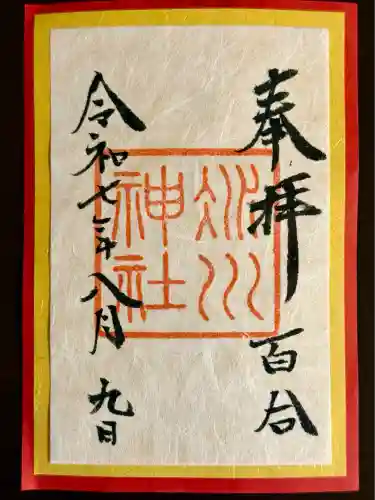 奉拝 百合
冰川
神社
令和七年八月九日